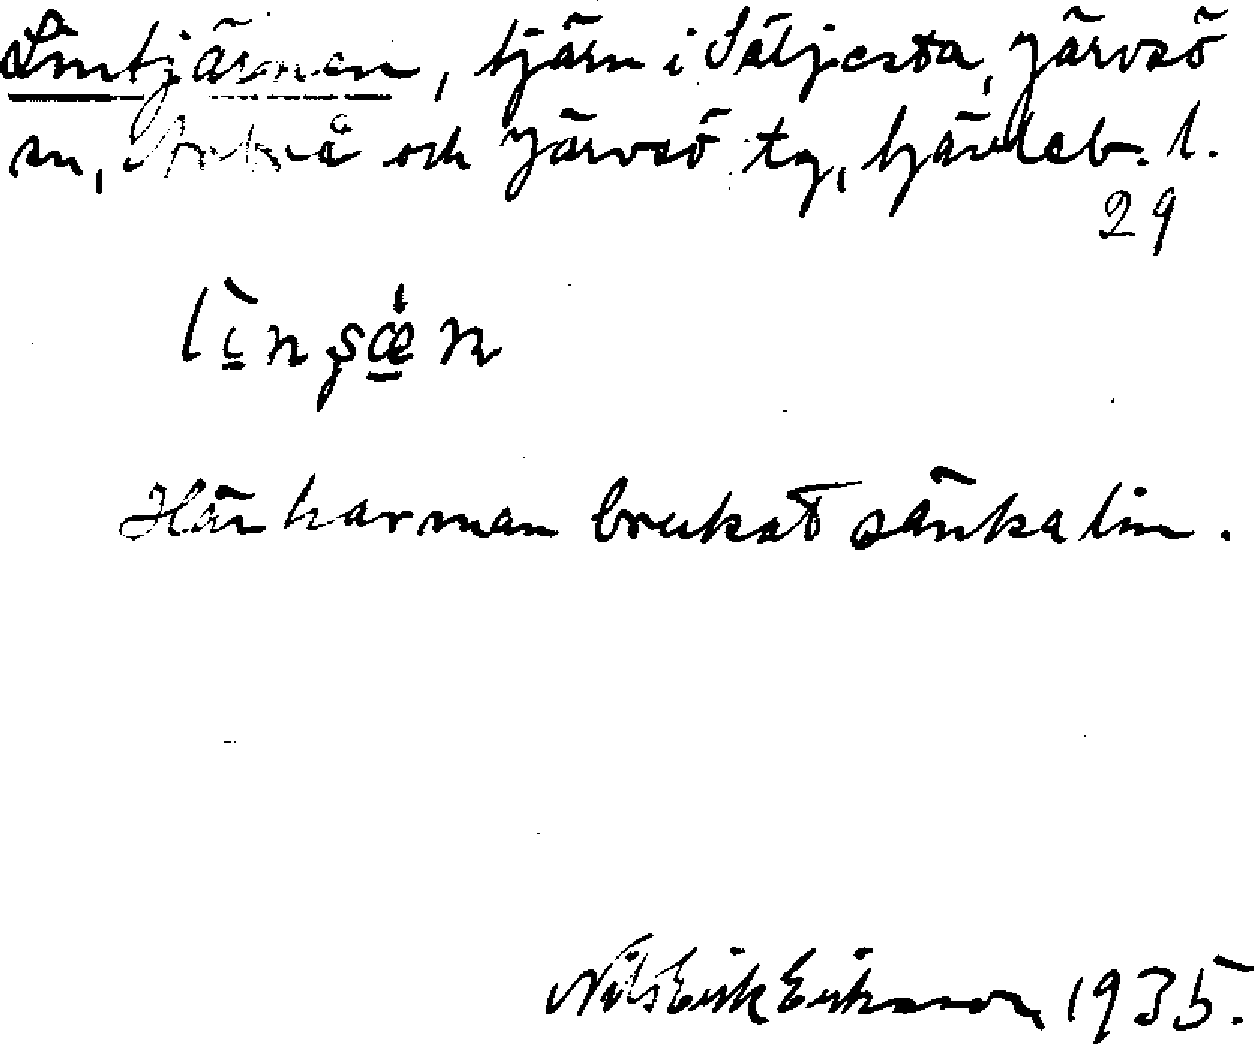 Lintjärnen, tjärn i Säljesta, Järvsö
sn, Arbrå och Järvsö tg, Gävleb. l.
29
līnşæ̀n
Här har man brukat sänka lin.
Nils Erik Eriksson 1935.